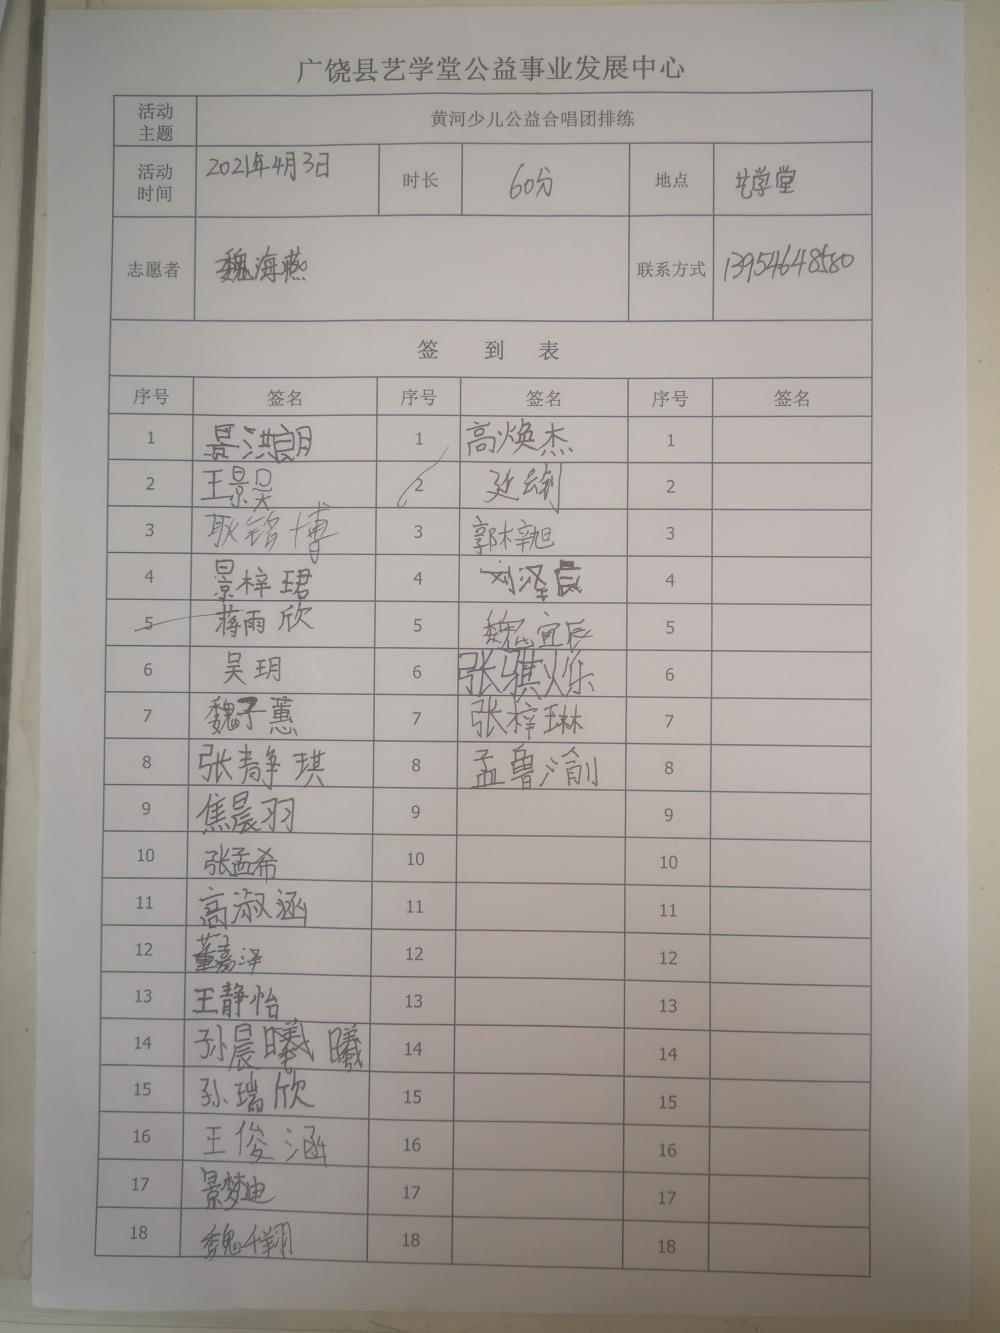 广饶县艺学堂公益事业发展中心
活动主题 黄河少儿公益合唱团排练
活动时间 2021年4月3日 时长 60分 地点 艺学堂
志愿者 魏海燕 联系方式 13954648580
签 到 表
序号 签名 序号 签名 序号 签名
1 景洪朗 1 高焕杰 1
2 王景昊 2 2
3 耿铭博 3 郭梓旭 3
4 景梓珺 4 刘泽良 4
5 蒋雨欣 5 魏宜辰 5
6 吴玥 6 张骐烁 6
7 魏子蕙 7 张梓琳 7
8 张静琪 8 孟鲁渝 8
9 焦晨羽 9 9
10 张孟希 10 10
11 高淑涵 11 11
12 董嘉泽 12 12
13 王静怡 13 13
14 孙晨曦 曦 14 14
15 孙瑞欣 15 15
16 王俊涵 16 16
17 景梦迪 17 17
18 魏千翔 18 18